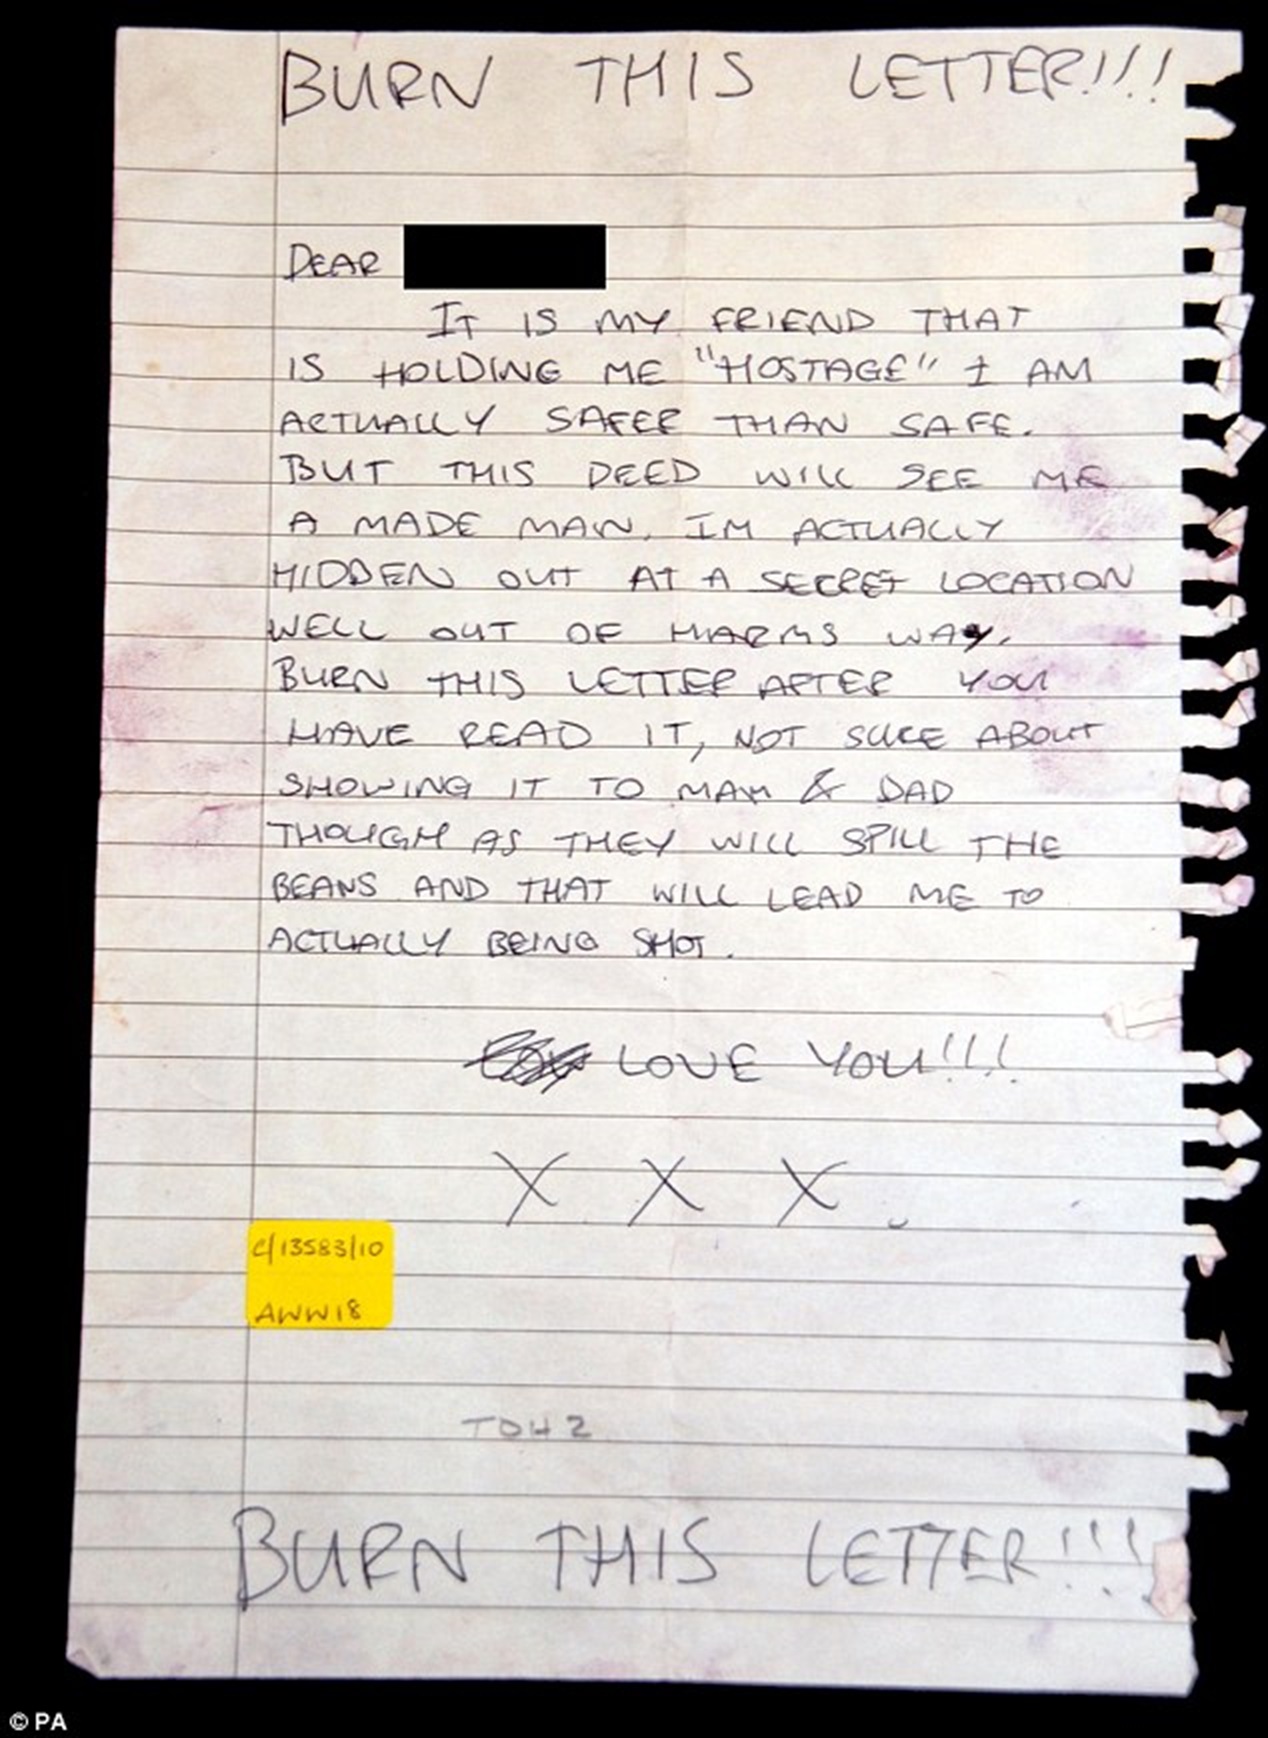 BURN THIS LETTER!!!
DEAR
IT IS MY FRIEND THAT
IS HOLDING ME "HOSTAGE" I AM
ACTUALLY SAFER THAN SAFE.
BUT THIS DEED WILL SEE ME
A MADE MAN. IM ACTUALLY
HIDDEN OUT AT A SECRET LOCATION
WELL OUT OF HARMS WAY.
BURN THIS LETTER AFTER YOU
HAVE READ IT, NOT SURE ABOUT
SHOWING IT TO MAM & DAD
THOUGH AS THEY WILL SPILL THE
BEANS AND THAT WILL LEAD ME TO
ACTUALLY BEING SHOT.
LOVE YOU!!!
X X X
C/13583/10
AWW18
TDH2
BURN THIS LETTER!!!
© PA